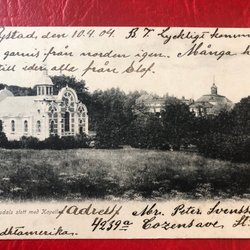 ystad, den 10.4.04. B. T. Lyckligt kommen
garnis från norden igen. Många k
till Eder alla från Elof.
dals slott med Kapell
Adress Mr. Peter Svensso
4239a Cozens ave St
dtamerika.